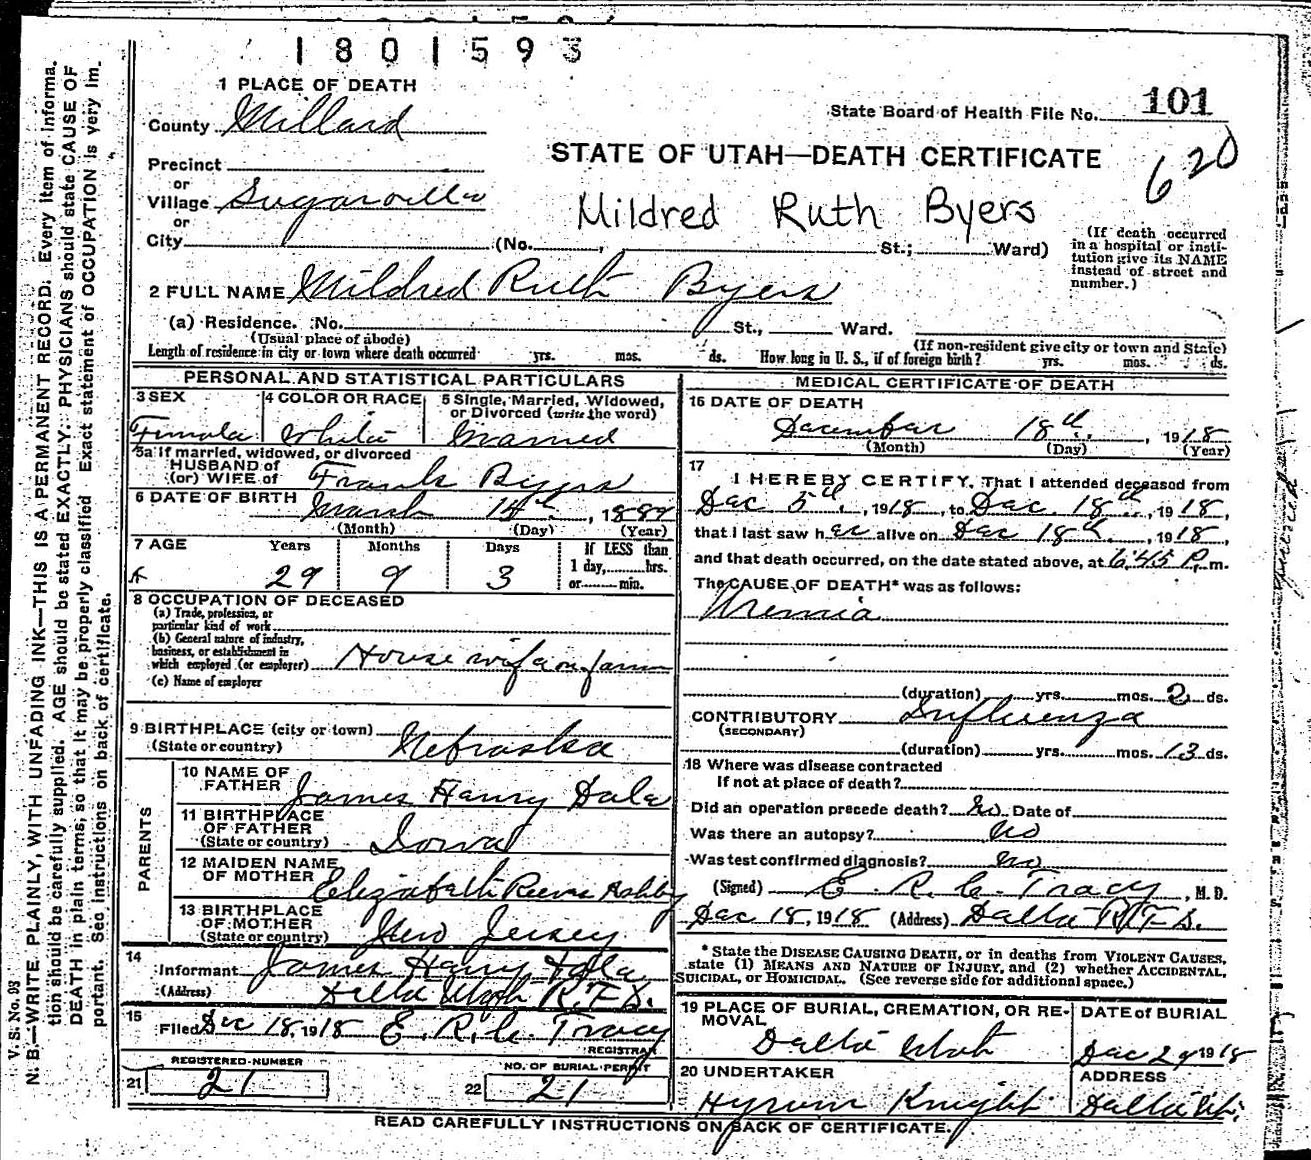 1801593
1 PLACE OF DEATH
County Millard
State Board of Health File No. 101
620
Precinct
STATE OF UTAH—DEATH CERTIFICATE
or
Village Sugarville
Mildred Ruth Byers
or
City (No. , St.; Ward)
(If death occurred in a hospital or institution give its NAME instead of street and number.)
2 FULL NAME Mildred Ruth Byers
(a) Residence. No. St., Ward.
(Usual place of abode) (If non-resident give city or town and State)
Length of residence in city or town where death occurred yrs. mos. ds. How long in U. S., if of foreign birth? yrs. mos. ds.
PERSONAL AND STATISTICAL PARTICULARS
3 SEX 4 COLOR OR RACE 5 Single, Married, Widowed,
or Divorced (write the word)
Female White Married
5a If married, widowed, or divorced
HUSBAND of
(or) WIFE of Frank Byers
6 DATE OF BIRTH March 15th, 1889
(Month) (Day) (Year)
7 AGE Years Months Days If LESS than
1 day, hrs.
29 9 3 or min.
8 OCCUPATION OF DECEASED
(a) Trade, profession, or
particular kind of work
(b) General nature of industry,
business, or establishment in
which employed (or employer) House wife on farm
(c) Name of employer
9 BIRTHPLACE (city or town)
(State or country) Nebraska
PARENTS
10 NAME OF
FATHER James Henry Dale
11 BIRTHPLACE
OF FATHER
(State or country) Iowa
12 MAIDEN NAME
OF MOTHER Elizabeth Ashby
13 BIRTHPLACE
OF MOTHER
(State or country) New Jersey
14
Informant James Henry Dale
(Address) Delta Utah R.F.D.
15
Filed Dec 18, 1918 E. R. C. Tracy
REGISTRAR
REGISTERED NUMBER NO. OF BURIAL PERMIT
21 21 22 21
MEDICAL CERTIFICATE OF DEATH
16 DATE OF DEATH
December 18th, 1918
(Month) (Day) (Year)
17
I HEREBY CERTIFY, That I attended deceased from
Dec 5th, 1918, to Dec. 18th, 1918,
that I last saw her alive on Dec 18th, 1918,
and that death occurred, on the date stated above, at 6:45 P. m.
The CAUSE OF DEATH* was as follows:
Uremia
(duration) yrs. mos. 2 ds.
CONTRIBUTORY Influenza
(SECONDARY)
(duration) yrs. mos. 13 ds.
18 Where was disease contracted
If not at place of death?
Did an operation precede death? No Date of
Was there an autopsy? No
Was test confirmed diagnosis? no
(Signed) E. R. C. Tracy, M. D.
Dec 18, 1918 (Address) Delta R.F.D.
* State the DISEASE CAUSING DEATH, or in deaths from VIOLENT CAUSES,
state (1) MEANS AND NATURE OF INJURY, and (2) whether ACCIDENTAL,
SUICIDAL, or HOMICIDAL. (See reverse side for additional space.)
19 PLACE OF BURIAL, CREMATION, OR RE- DATE of BURIAL
MOVAL
Delta Utah Dec 29 1918
20 UNDERTAKER ADDRESS
Hyrum Knight Delta Ut.
READ CAREFULLY INSTRUCTIONS ON BACK OF CERTIFICATE.
V. S. No. 98
N. B.—WRITE PLAINLY, WITH UNFADING INK—THIS IS A PERMANENT RECORD. Every item of informa-
tion should be carefully supplied. AGE should be stated EXACTLY. PHYSICIANS should state CAUSE OF
DEATH in plain terms, so that it may be properly classified. Exact statement of OCCUPATION is very im-
portant. See instructions on back of certificate.